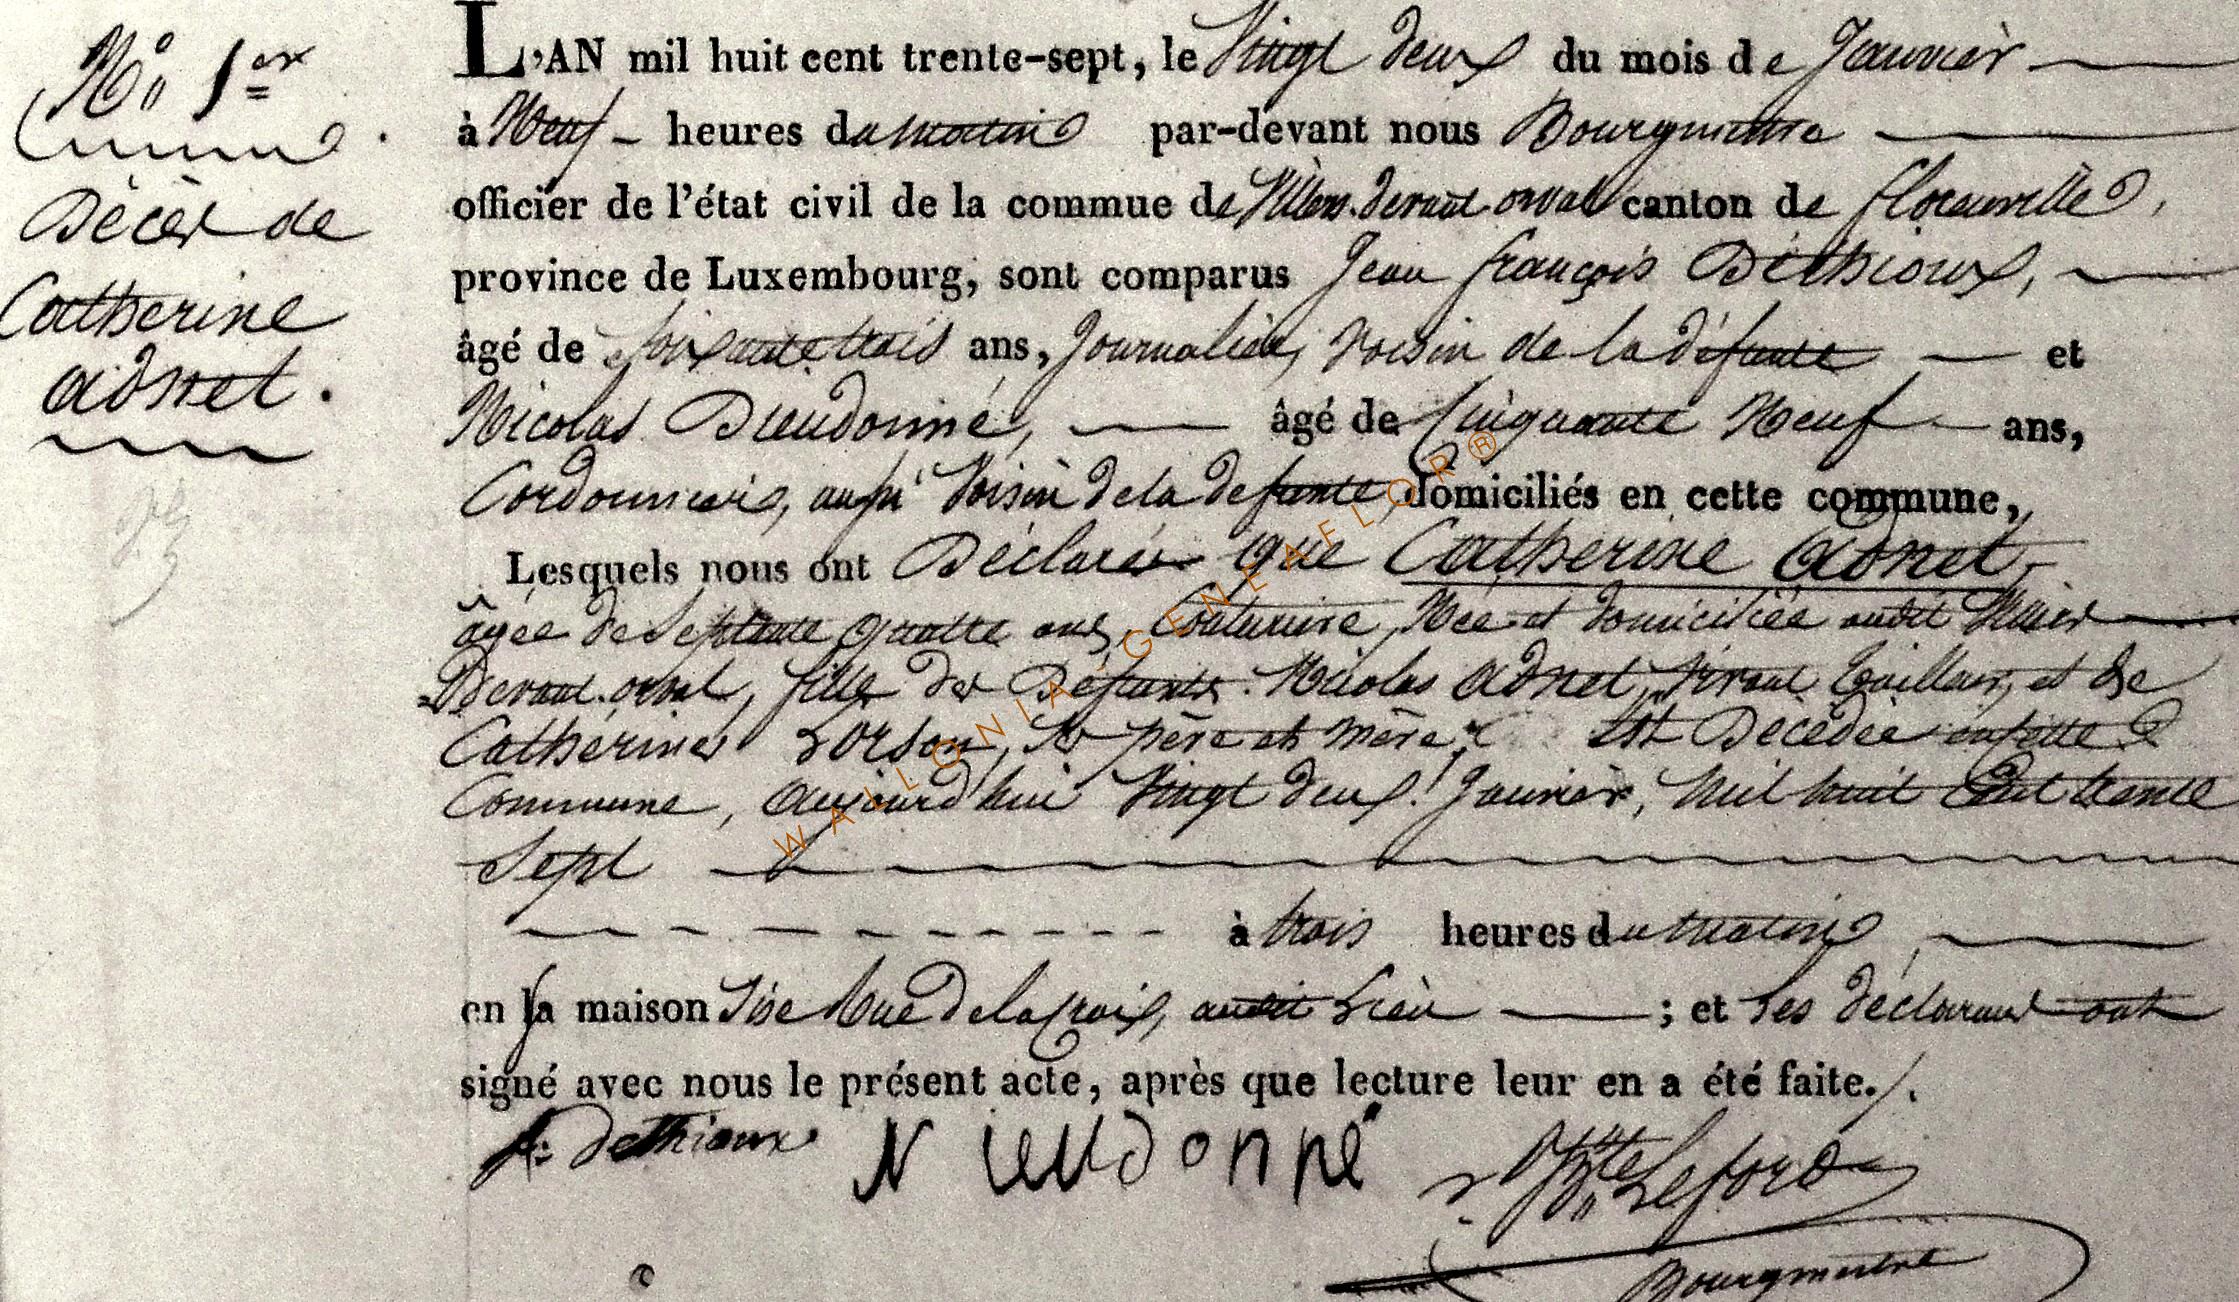 N° 1er
Décès de
Catherine
adnet.
L'AN mil huit cent trente-sept, le Vingt deux du mois de Janvier
à Neuf heures du matin par-devant nous Bourgmestre
officier de l'état civil de la commue de Villers-devant orval canton de florenville,
province de Luxembourg, sont comparus Jean françois Déthioux,
âgé de soixante trois ans, Journalier, Voisin de la défunte et
Nicolas Dieudonné, âgé de Cinquante Neuf ans,
Cordonnier, aussi Voisin de la defunte, domiciliés en cette commune,
Lesquels nous ont Déclarés que Catherine adnet,
âgée de Septante quatre ans, Couturière, Née et domiciliée audit Villers
Devant-orval, fille des Défunts Nicolas adnet, vivant tailleur, et de
Catherine Lorson, Ses père et mère, Est Décédée en cette
Commune, aujourd'hui Vingt deux Janvier, Mil huit Cent trente
Sept
à trois heures du matin
en sa maison Sise Rue de la Croix, audit Lieu ; et les déclarants ont
signé avec nous le présent acte, après que lecture leur en a été faite.
f: dethioux N ieudonné Bte Leford
Bourgmestre
WALLONIA GENEAFLOR®